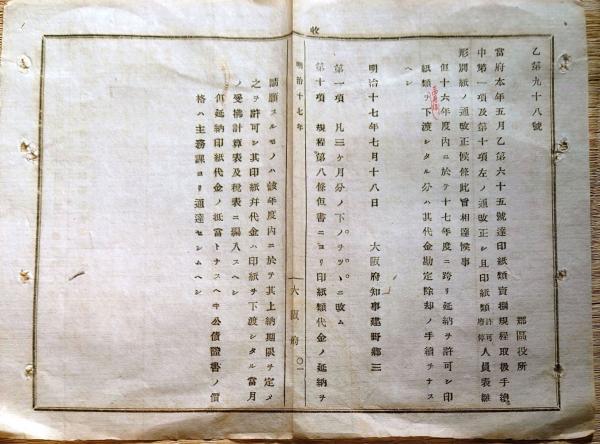 乙第九十八號
郡區役所
當府本年五月乙第六十五號達印紙類賣捌規程取扱手續
中第一項及第十項左ノ通改正シ且印紙類許可廢停人員表雛
形別紙ノ通改正候條此旨相達候事
但十六年度內ニ於テ十七年度ニ跨リ延納ヲ許可シ印
紙類ヲ下渡シタル分ハ其代金勘定除却ノ手續ヲナス
ヘシ
明治十七年七月十八日
大阪府知事建野鄕三
第一項 凡三ヶ月分ノ下ノヲツヽニ改ム
第十項 規程第八條但書ニヨリ印紙類代金ノ延納ヲ
收
明治十七年
大阪府
請願スルモノハ該年度內ニ於テ其上納期限ヲ定メ
之ヲ許可シ其印紙幷代金ハ印紙ヲ下渡シタル當月
ノ受拂計算表及稅表ニ編入スヘシ
但延納印紙代金ノ抵當トナスヘキ公債證書ノ價
格ハ主務課ヨリ通達セシムヘシ